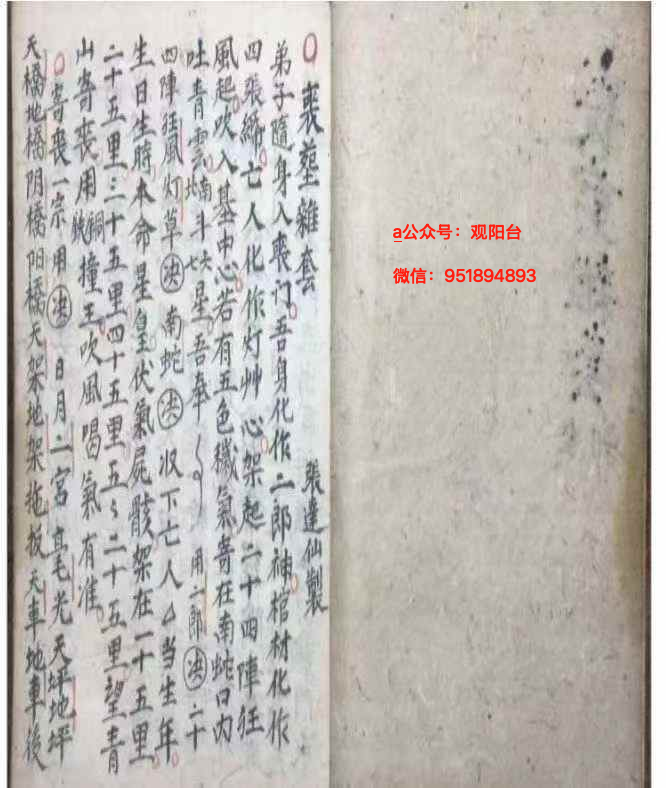 喪塟雜套 張達仙製
弟子隨身入喪门吾身化作二郎神棺材化作
四張締亡人化作灯艸心架起二十四陣狂
風起吹入墓中心若有五色穢氣寄在南蛇口内
吐青雲南北斗六七星吾奉 用二郎決二十
四陣狂風灯草決南蛇決收下亡人厶当生年
生日生時本命星皇伏氣屍骸架在一十五里
二十五里三十五里四十五里五〻二十五里望青
山寄喪用銅鉄撞王吹風喝氣有准
寄喪一宗用決 日月二宮 毫光天坪地坪
天橋地橋阴橋阳橋天架地架拖板天車地車後
a公众号：观阳台
微信：951894893